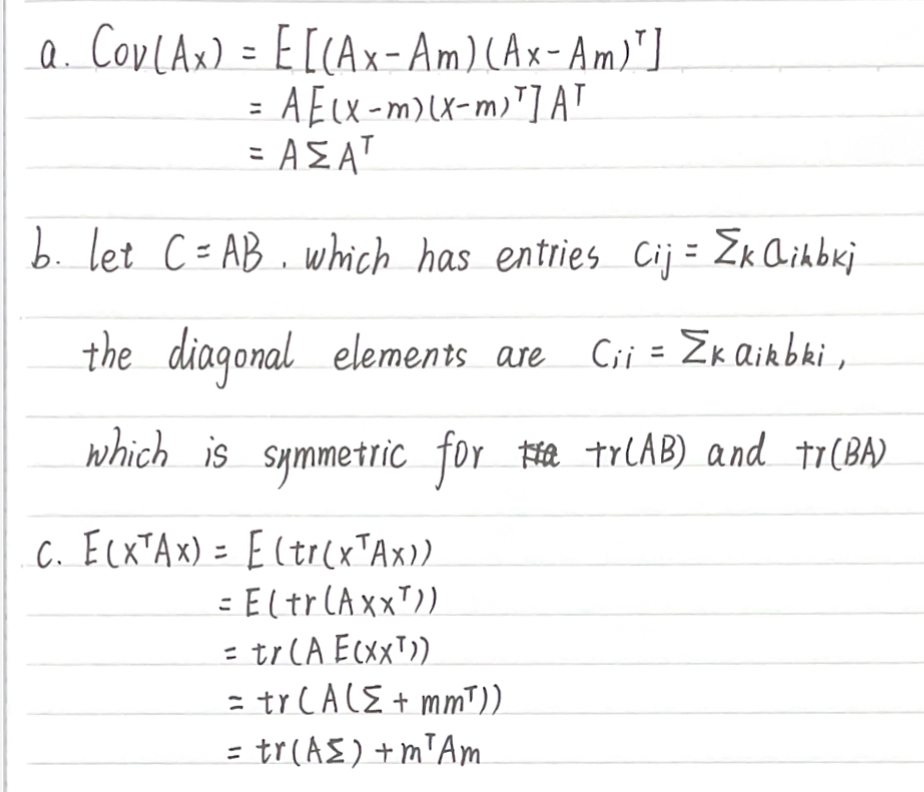 a. Cov(Ax) = E[(Ax-Am)(Ax-Am)ᵀ]
= AE(x-m)(x-m)ᵀ]Aᵀ
= AΣAᵀ
b. let C = AB. which has entries Cij = Σk aikbkj
the diagonal elements are Cii = Σk aikbki,
which is symmetric for tr(AB) and tr(BA)
c. E(xᵀAx) = E(tr(xᵀAx))
= E(tr(Axxᵀ))
= tr(A E(xxᵀ))
= tr(A(Σ + mmᵀ))
= tr(AΣ) + mᵀAm